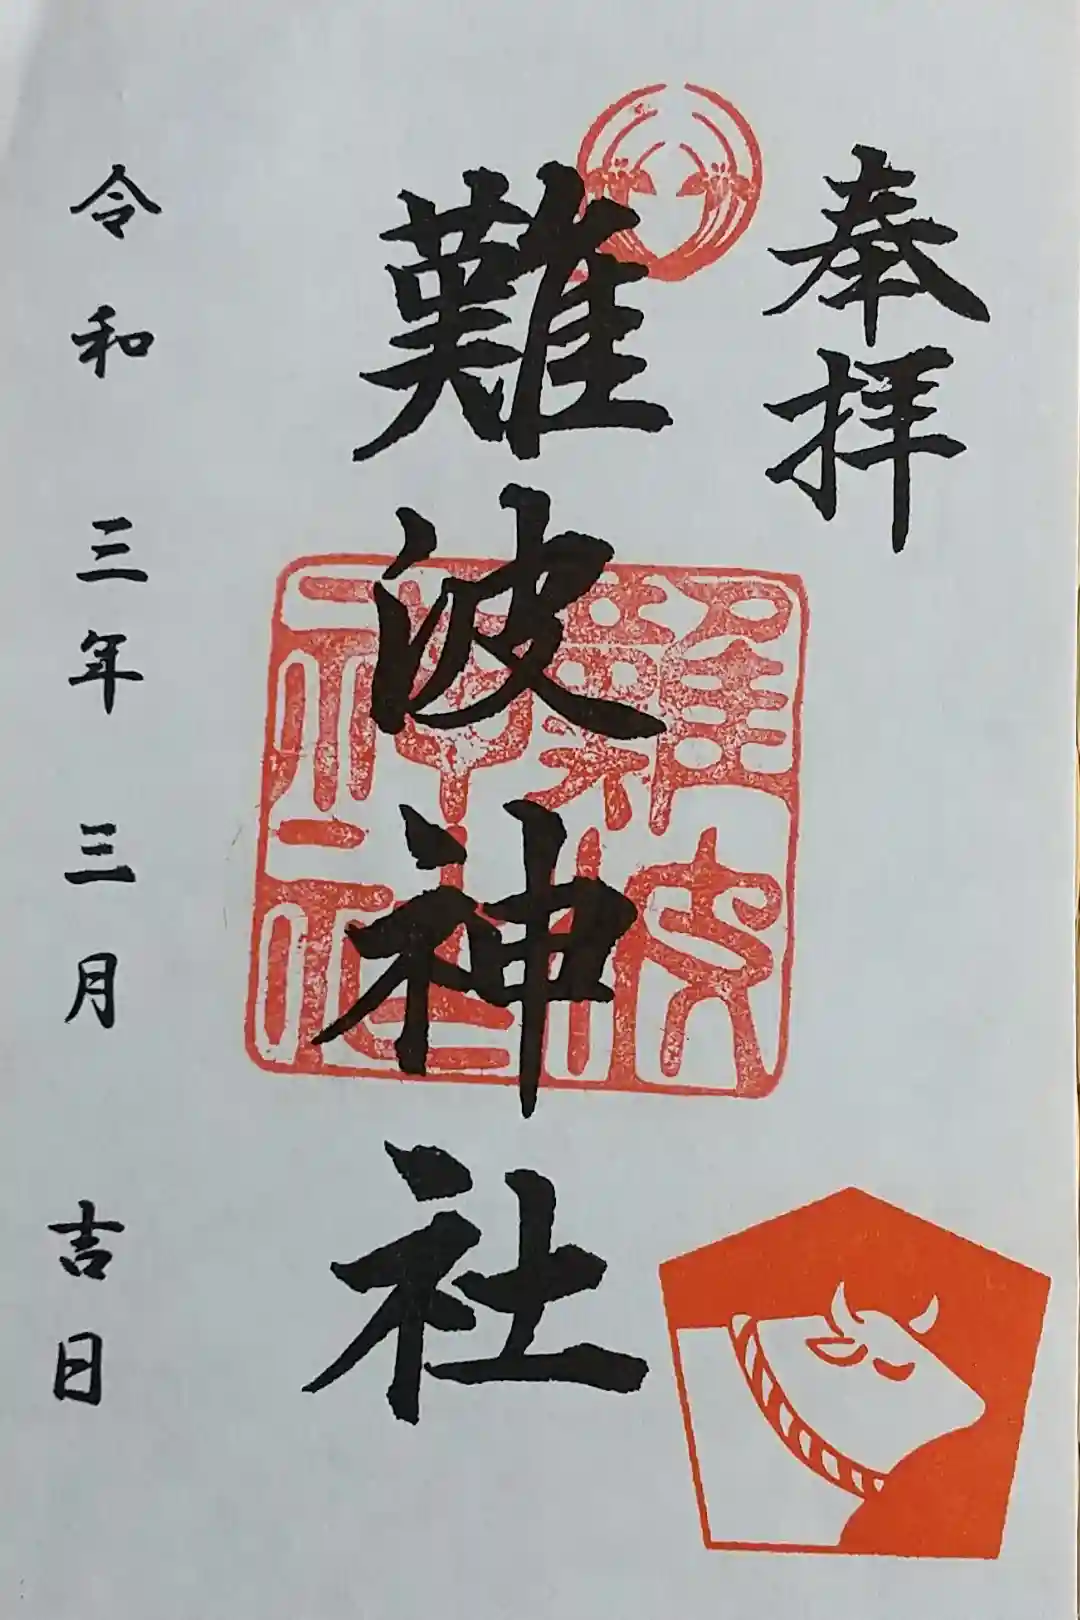 奉拝
難波神社
難波神社
令和三年三月吉日